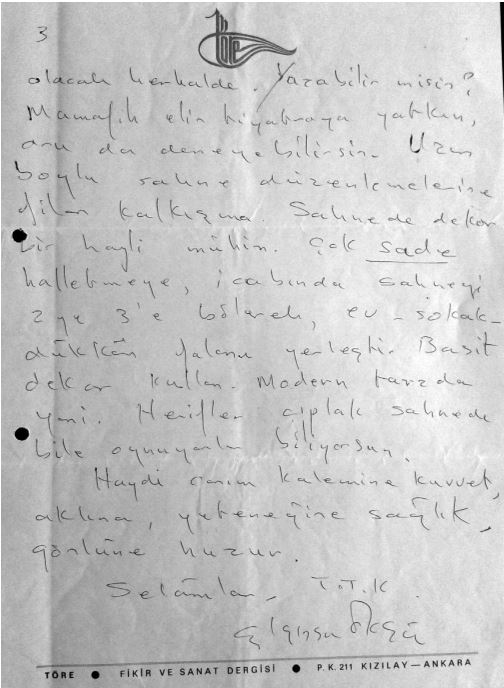 3
töre
olacak herhalde. Yazabilir misin?
Mamafih elin tiyatroya yatkın,
onu da deneyebilirsin. Uzun
boylu sahne düzenlemelerine
filan kalkışma. Sahnede dekor
bir hayli mühim. Çok sade
halletmeye, icabında sahneyi
2 ye 3'e bölerek, ev - sokak -
dükkân falanı yerleştir. Basit
dekor kullan. Modern tarzda
yani. Herifler çıplak sahnede
bile oynuyorlar biliyorsun.
Haydi canım kalemine kuvvet,
aklına, yeteneğine sağlık,
gönlüne huzur.
Selâmlar, T.T.K
TÖRE ● FİKİR VE SANAT DERGİSİ ● P.K. 211 KIZILAY — ANKARA